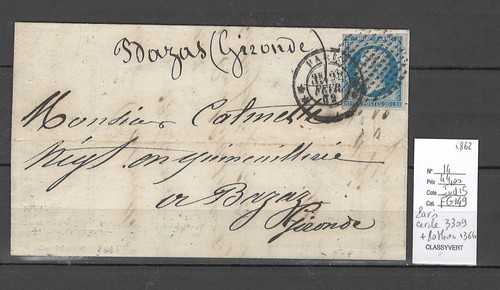 Bazas (Gironde)
PARIS
FEVR
62
POSTES 20 C
Monsieur
Négt en quincaillerie
a Bazas
Gironde
1862
N° 14
Prix
Cote Ind 15
Cat. FG149
Paris
cercle 3309
+ 1366
CLASSYVERT